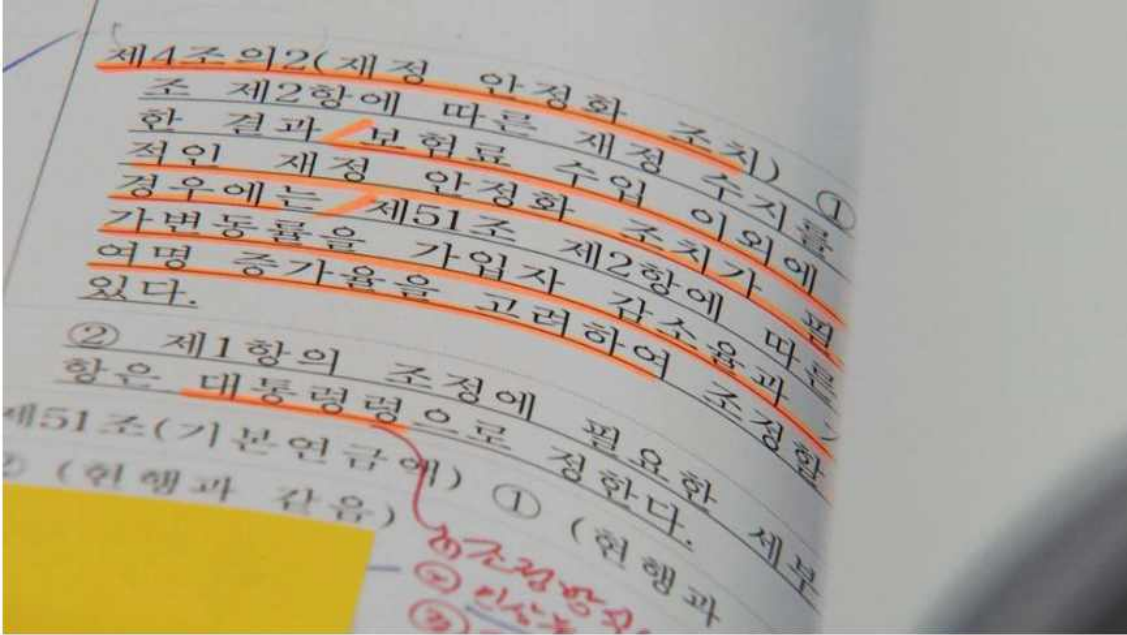 제4조의2(재정 안정화 조치) ①
조 제2항에 따른 재정 수지를
한 결과 보험료 수입 이외에
적인 재정 안정화 조치가 필
경우에는 제51조 제2항에 따른
가변동률을 가입자 감소율과
여명 증가율을 고려하여 조정할
있다.
② 제1항의 조정에 필요한 세부
항은 대통령령으로 정한다.
제51조(기본연금액) ① (현행과
② (현행과 같음)
① 조정방식
② 인상
③